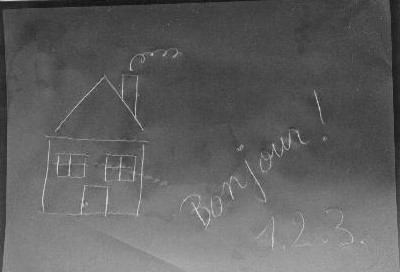 Bonjour!
1.2.3.